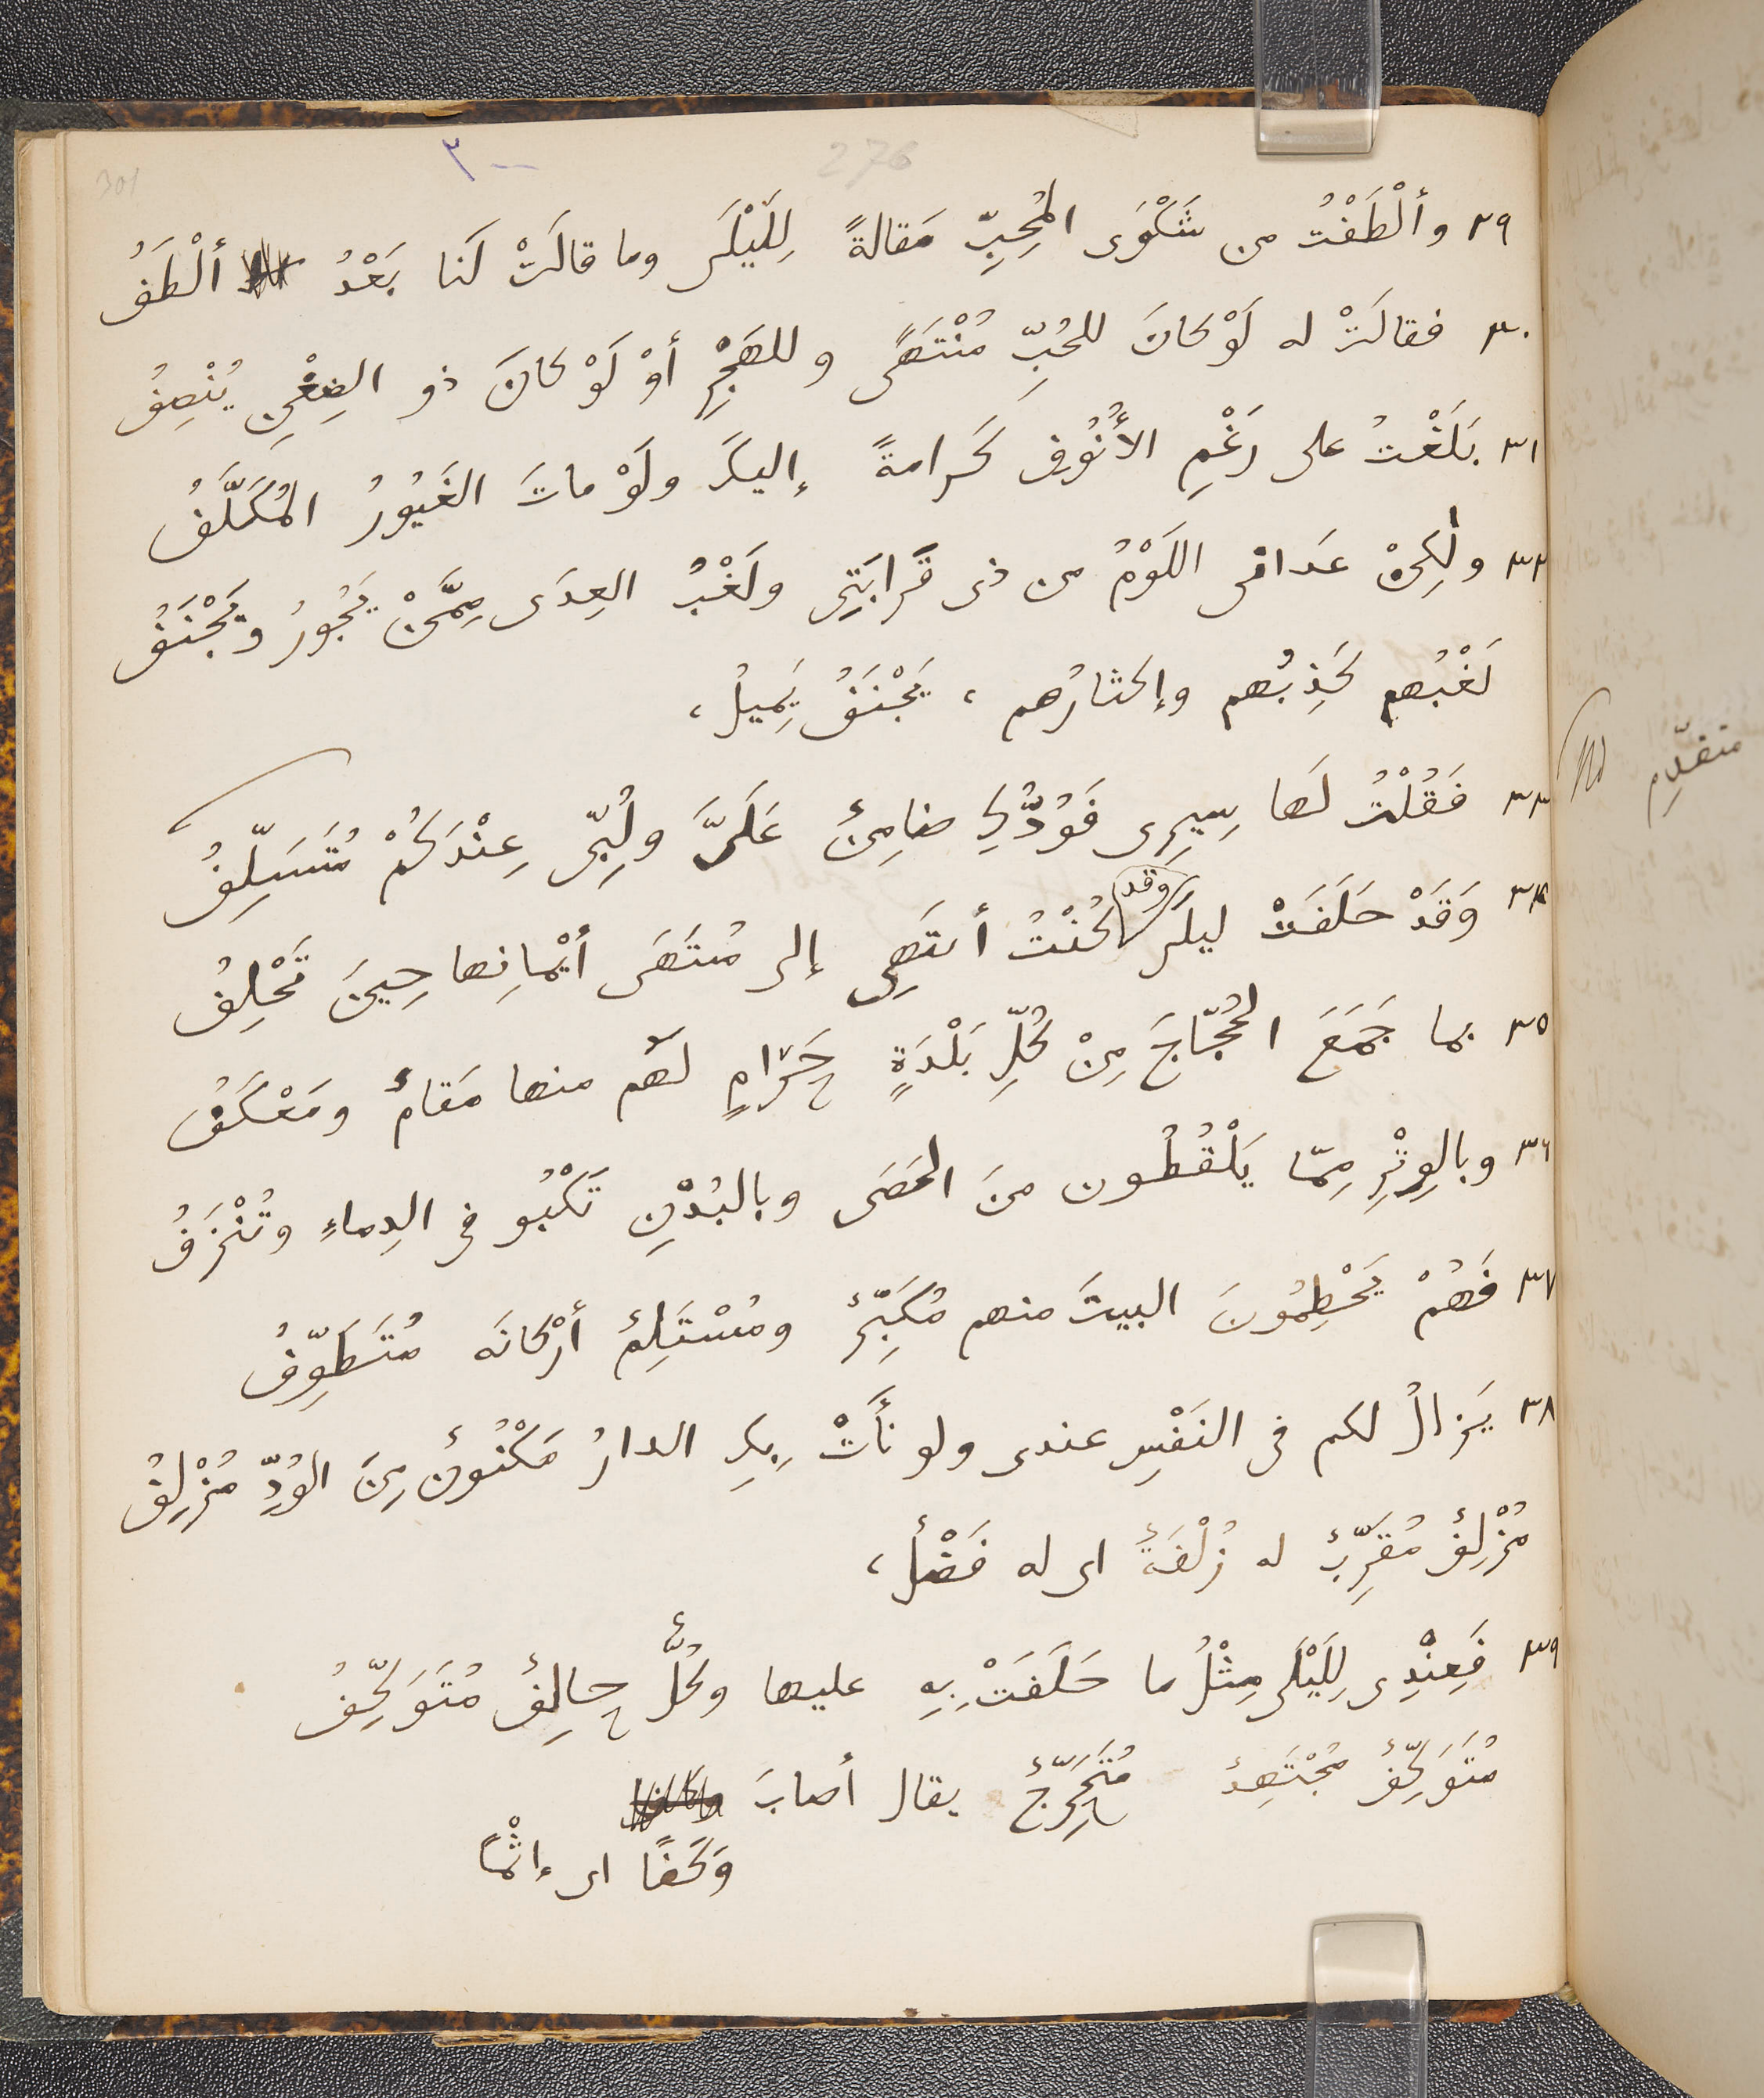 301
٣٠٠
276
٢٩ وأَلْطَفْتُ من شَكْوَى المُحِبِّ مَقالةً لِلَيْلَى وما قالَتْ لَنا بَعْدُ أَلْطَفُ
٣٠ فقالَتْ له لَوْ كانَ للحُبِّ مُنْتَهًى وللهَجْرِ أوْ لَوْ كانَ ذو الضِغْنِ يُنْصِفُ
٣١ بَلَغْتُ على رَغْمِ الأُنُوفِ كَرامةً إليكَ ولَوْ ماتَ الغَيُورُ المُكَلَّفُ
٣٢ ولٰكِنْ عَدانى اللَوْمُ من ذى قَرابَتِى ولَغْبُ العِدَى مِمَّنْ يَجُورُ ويَجْنَفُ
لَغْبُهم كَذِبُهم وإكثارُهم ، يَجْنَفُ يَمِيلُ ،
٣٣ فَقُلْتُ لها سِيرِى فَوُدُّكِ ضامِنٌ عَلَىَّ ولُبِّى عِنْدَكُمْ مُتَسَلِّفُ
٣٤ وَقَدْ حَلَفَتْ ليلَى وقد كُنْتُ أنتَهِى إلى مُنتَهَى أيْمانِها حِينَ تَحْلِفُ
٣٥ بما جَمَعَ الحُجّاجَ مِنْ كُلِّ بَلْدَةٍ حَرامٍ لهم منها مَقامٌ ومَعْكَفُ
٣٦ وبالوِتْرِ مِمّا يَلْقُطُون منَ الحَصَى وبالبُدْنِ تَكْبُو فى الدِماءِ وتُنْزَفُ
٣٧ فَهُمْ يَحْطِمُونَ البيتَ منهم مُكَبِّرٌ ومُسْتَلِمٌ أرْكانَه مُتَطَوِّفُ
٣٨ يَزالُ لكم فى النَفْسِ عندى ولو نأَتْ بِكِ الدارُ مَكْنُونٌ مِنَ الوُدِّ مُزْلِفُ
مُزْلِفٌ مُقَرِّبٌ له زُلْفَةٌ اى له فَضْلٌ ،
٣٩ فَعِنْدِى لِلَيْلَى مِثْلُ ما حَلَفَتْ بِهِ عليها وكُلٌّ حالِفٌ مُتَوَكِّفُ
مُتَوَكِّفٌ مُجْتَهِدٌ مُتَحَرِّجٌ يقال أصابَ
وَكَفًا اى إثْمًا
متقدّم